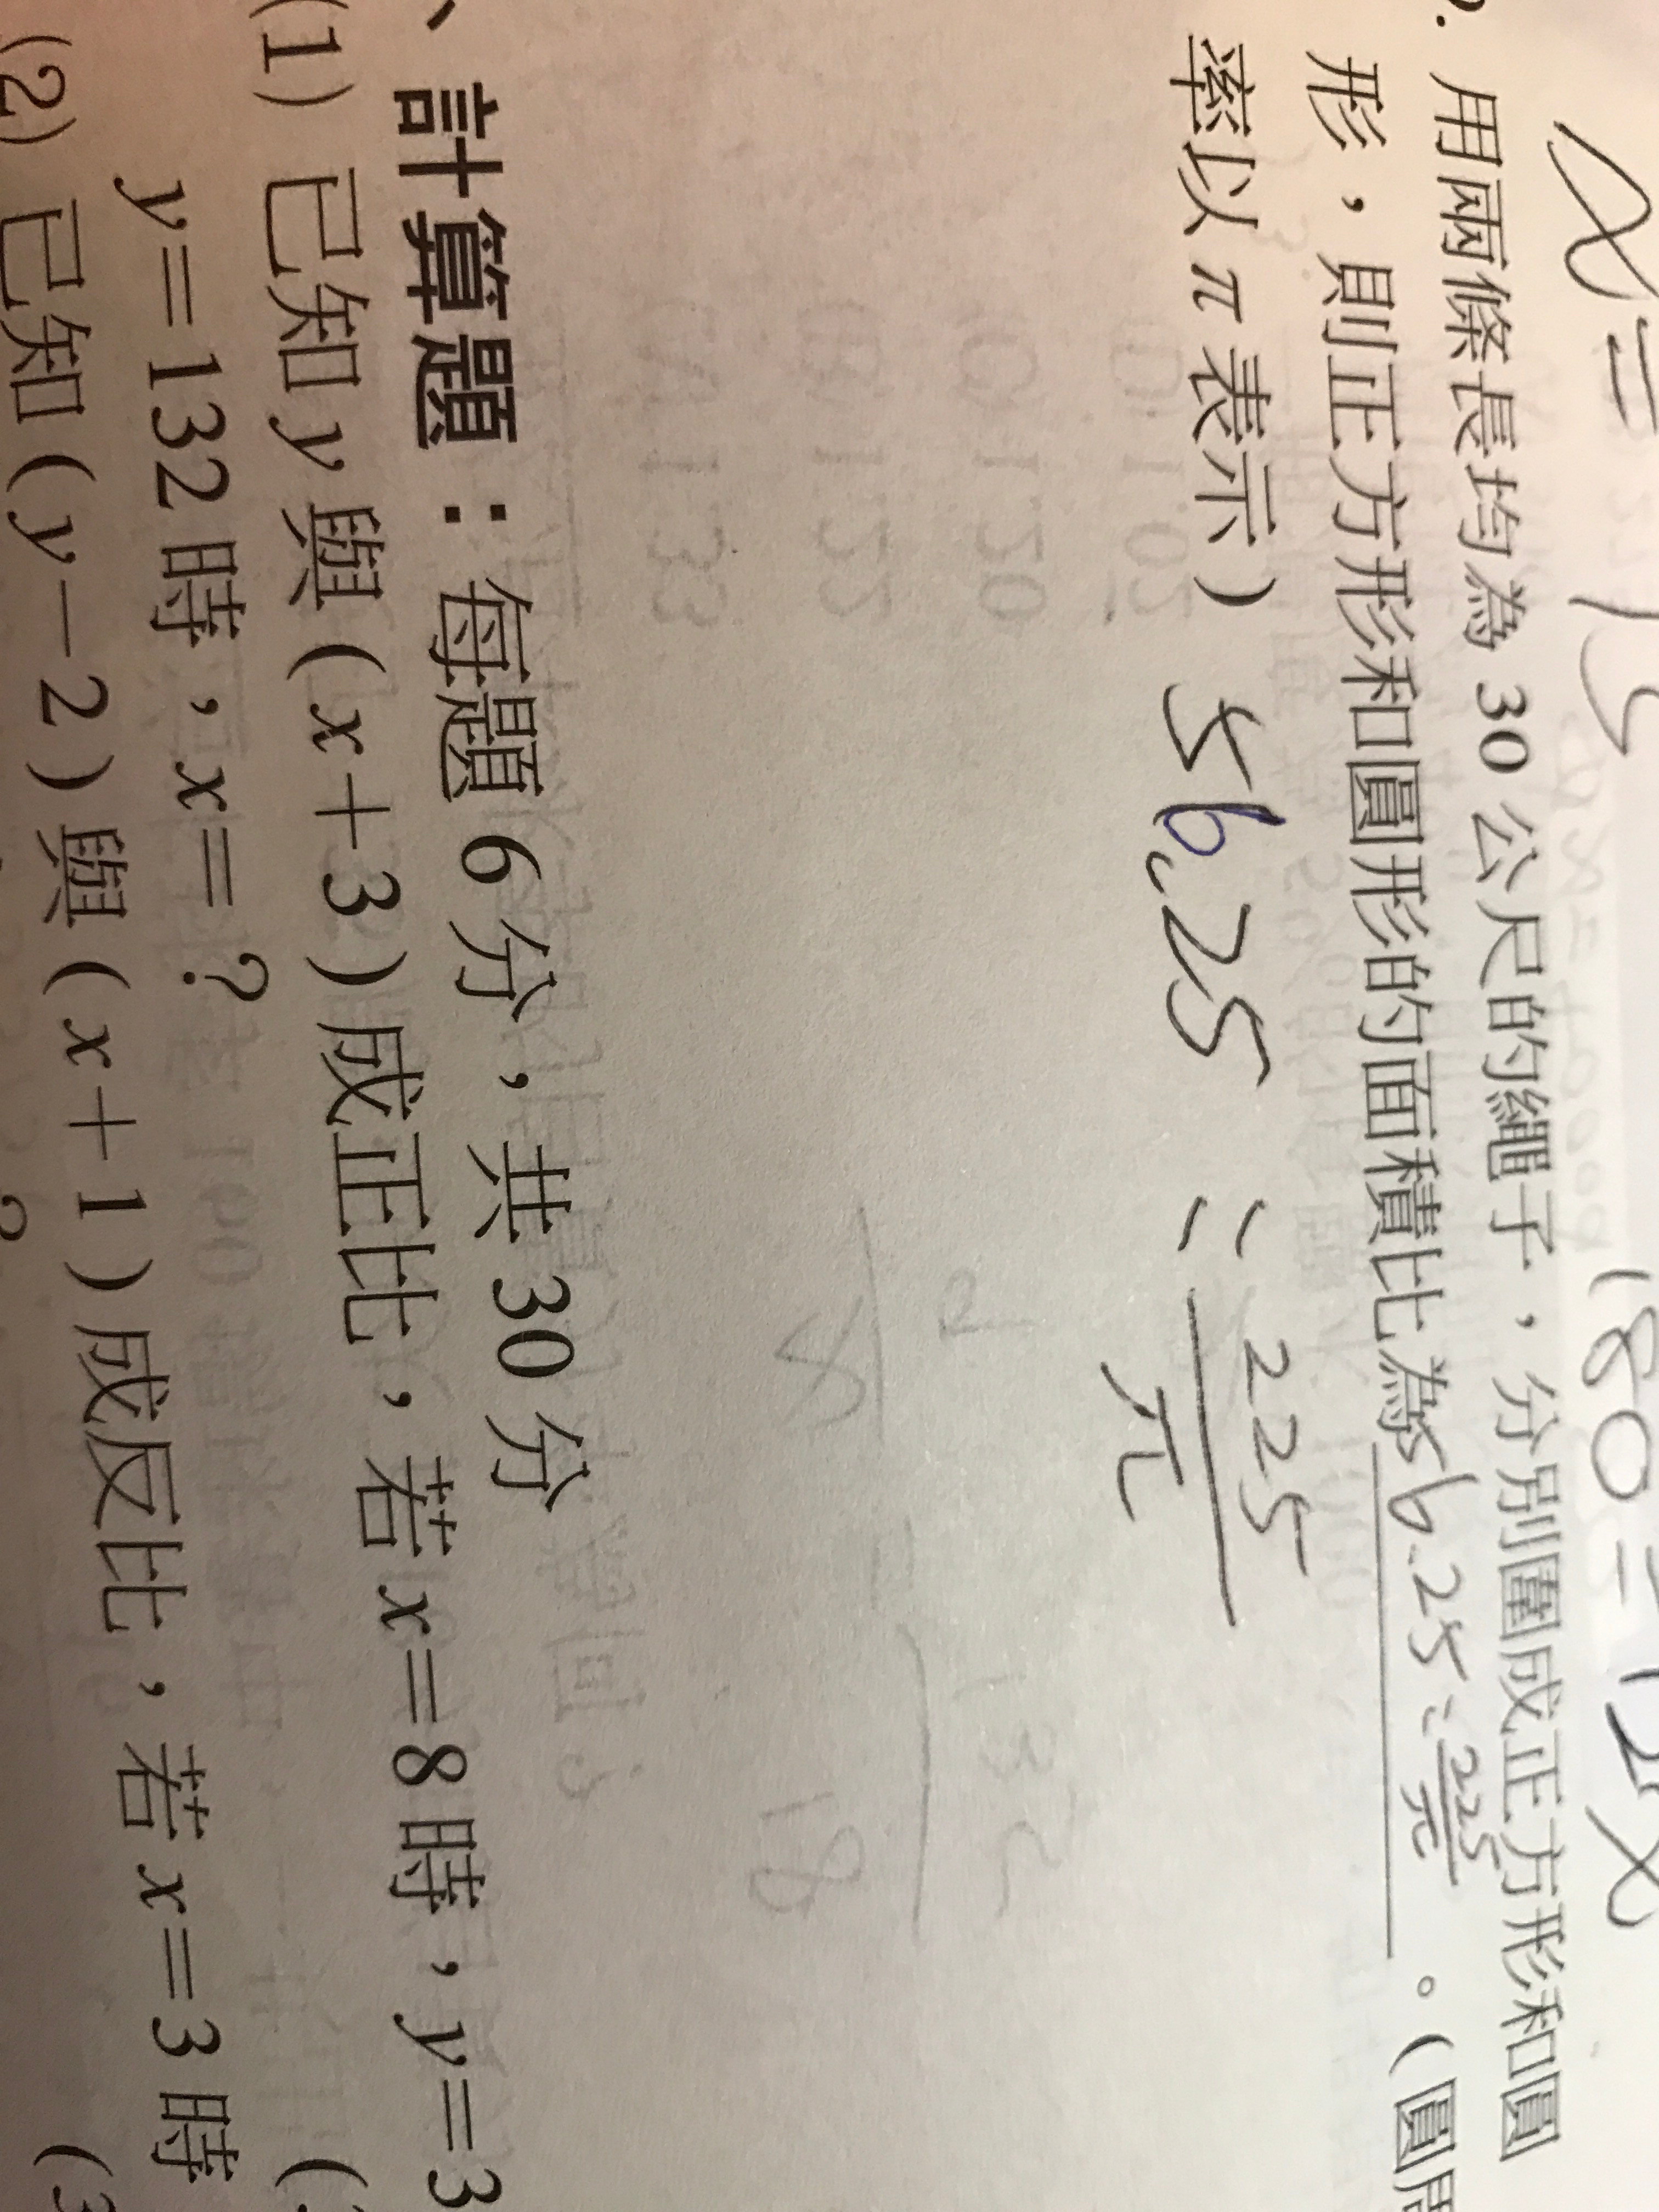 x = 15
180 = 12x
用兩條長均為 30 公尺的繩子，分別圍成正方形和圓
形，則正方形和圓形的面積比為56.25:225/π。（圓周
率以 π 表示）
56.25 : 225/π
、計算題：每題 6 分，共 30 分
(1) 已知 y 與 (x+3) 成正比，若 x=8 時，y=3
y=132 時，x=？
(2) 已知 (y-2) 與 (x+1) 成反比，若 x=3 時